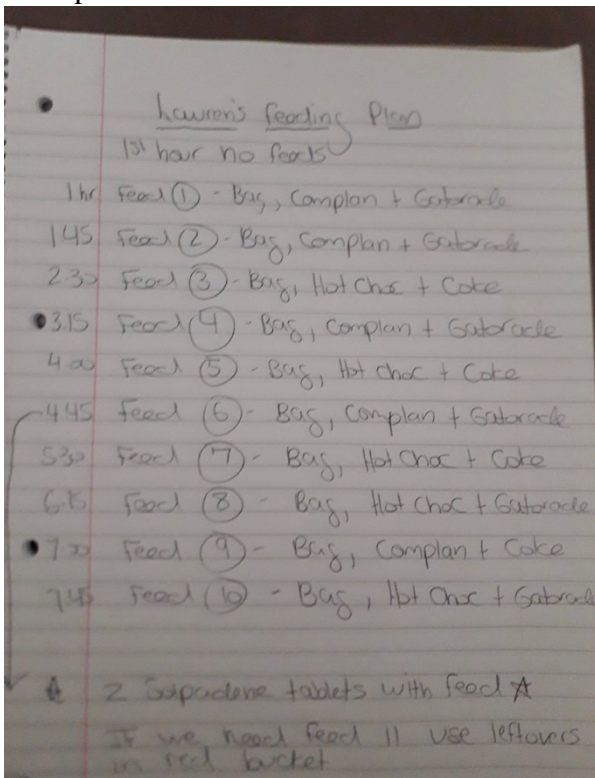 Lauren's feeding Plan
1st hour no feeds
1hr Feed 1 - Bag, Complan + Gatorade
1.45 Feed 2 - Bag, Complan + Gatorade
2.30 Feed 3 - Bag, Hot Choc + Coke
3.15 Feed 4 - Bag, Complan + Gatorade
4.00 Feed 5 - Bag, Hot Choc + Coke
4.45 Feed 6 - Bag, Complan + Gatorade
5.30 Feed 7 - Bag, Hot Choc + Coke
6.15 Feed 8 - Bag, Hot Choc + Gatorade
7.00 Feed 9 - Bag, Complan + Coke
7.45 Feed 10 - Bag, Hot Choc + Gatorade
☆ 2 Solpadene tablets with feed ☆
If we need feed 11 use leftovers
in red bucket